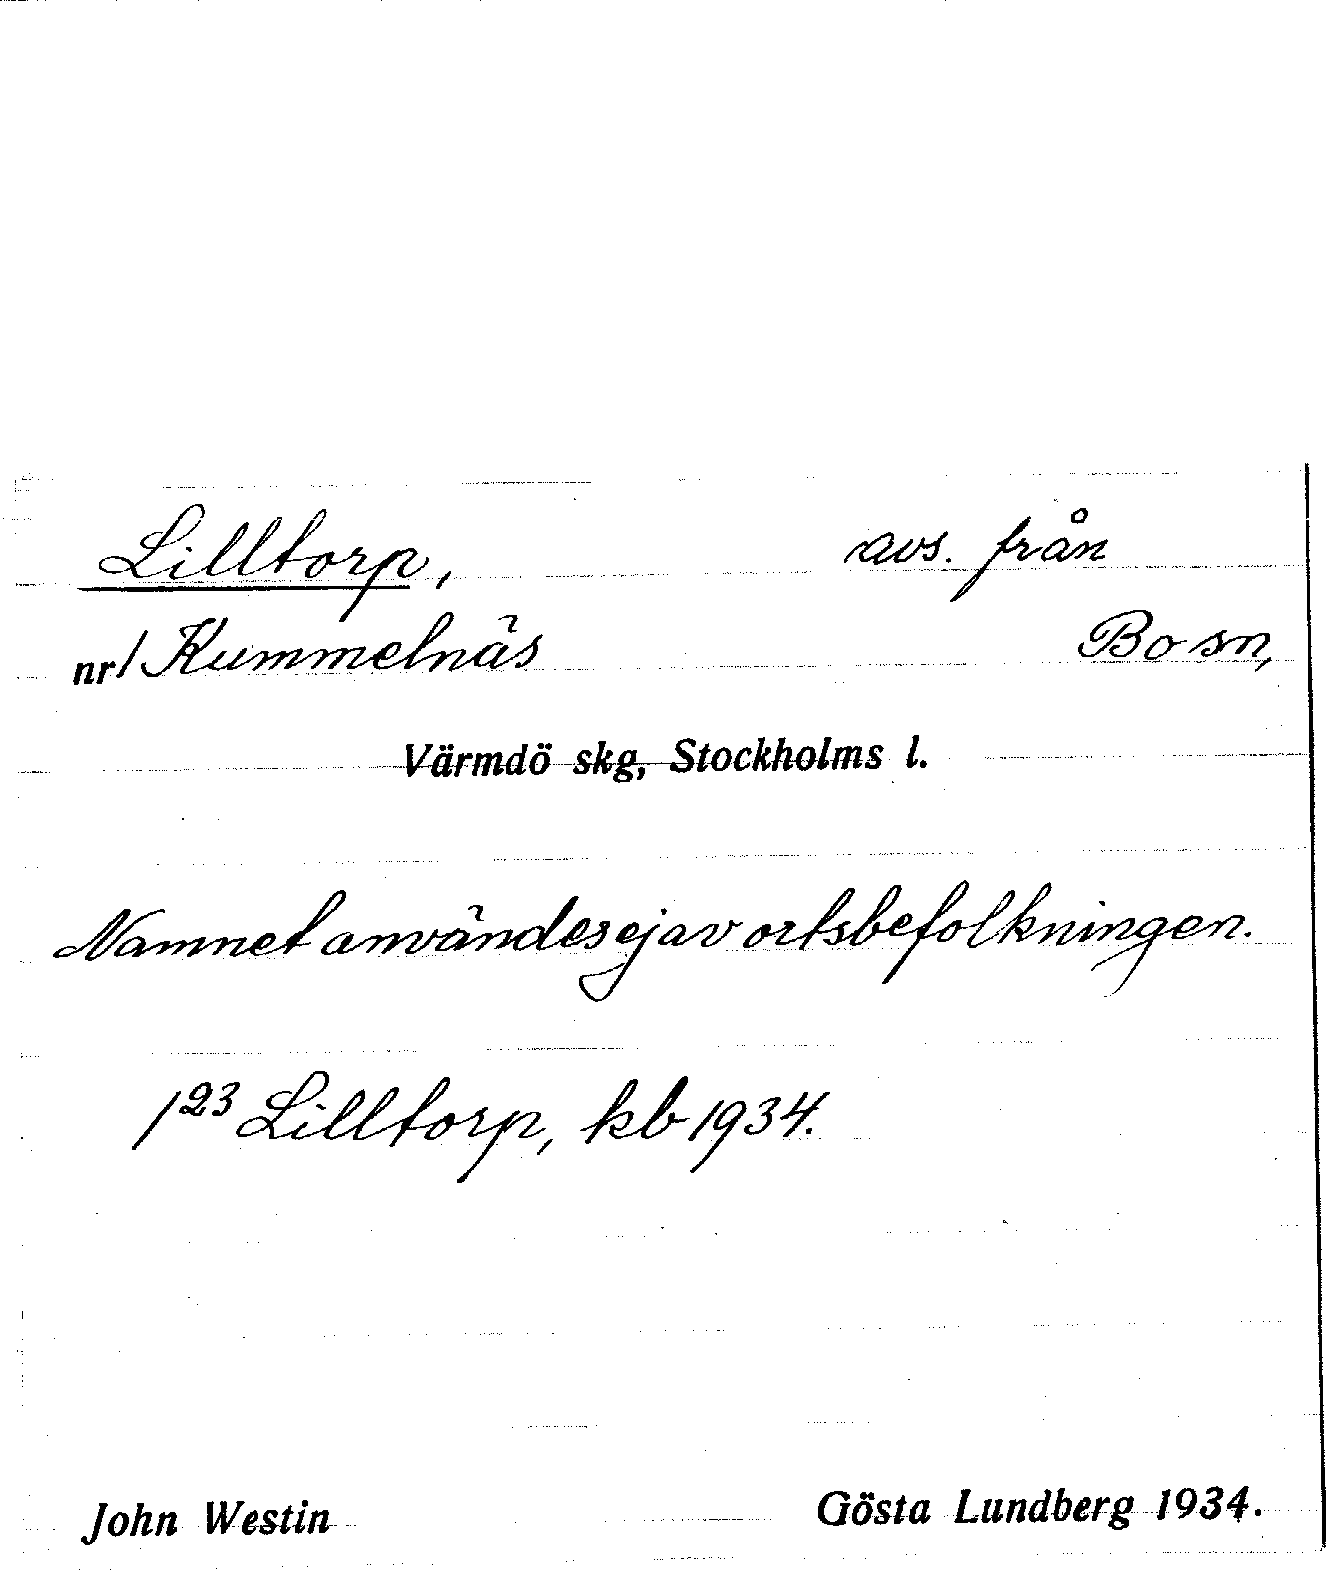 Lilltorp, avs. från
nr 1 Kummelnäs Bo sn,
Värmdö skg, Stockholms l.
Namnet användes ej av ortsbefolkningen.
1²³ Lilltorp, kb 1934.
John Westin Gösta Lundberg 1934.